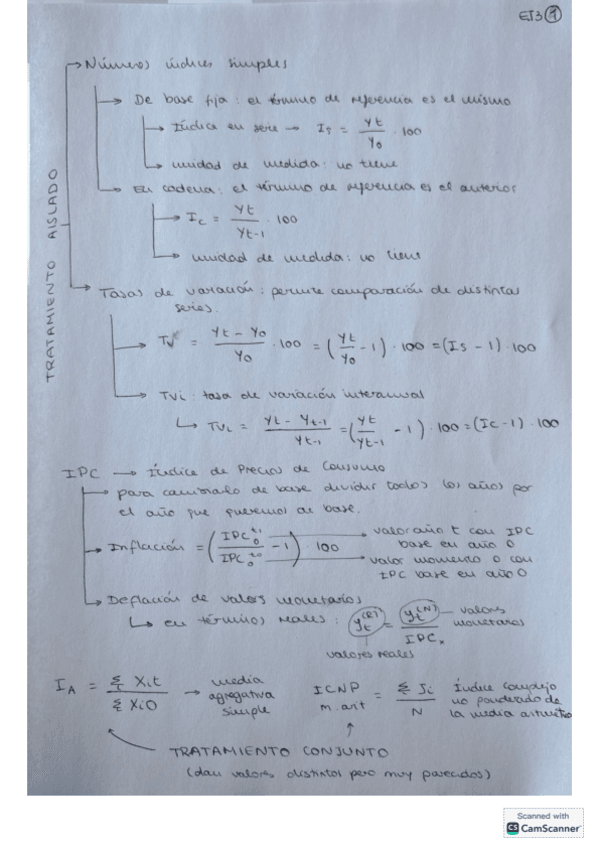 EI3 1
TRATAMIENTO AISLADO
→ Números índices simples
→ De base fija: el término de referencia es el mismo
→ Índice en serie → Is = Yt / Y0 · 100
→ unidad de medida: no tiene
→ En cadena: el término de referencia es el anterior
→ Ic = Yt / Yt-1 · 100
→ unidad de medida: no tiene
→ Tasas de variación: permite comparación de distintas
series.
→ TV = Yt - Y0 / Y0 · 100 = (Yt / Y0 - 1) · 100 = (Is - 1) · 100
→ TVi: tasa de variación interanual
↳ TVi = Yt - Yt-1 / Yt-1 = (Yt / Yt-1 - 1) · 100 = (Ic - 1) · 100
IPC → Índice de Precios de Consumo
→ para cambiarlo de base dividir todos los años por
el año que queremos de base.
→ Inflación = (IPC0 t1 / IPC0 t0 - 1) · 100
→ valor año t con IPC
base en año 0
→ valor momento 0 con
IPC base en año 0
→ Deflación de valores monetarios
↳ en términos reales: yt(R) = yt(N) / IPC
valores
monetarios
valores reales
IA = Σ Xit / Σ Xi0 → media
agregativa
simple
ICNP
m. arit = Σ Ii / N
Índice complejo
no ponderado de
la media aritmética
TRATAMIENTO CONJUNTO
(dan valores distintos pero muy parecidos)
Scanned with
CS CamScanner